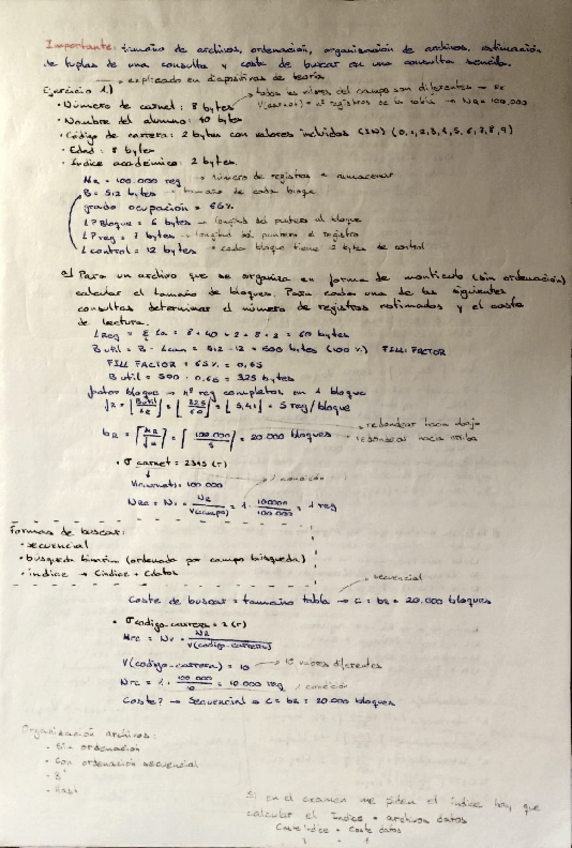 Importante: tamaño de archivos, ordenación, organización de archivos, estimación
de tuplas de una consulta y coste de buscar en una consulta sencilla.
→ explicado en diapositivas de teoría
Ejercicio 1.)
todos los valores del campo son diferentes →
V(carnet) = nº registros de la tabla → NR = 100.000
• Número de carnet: 8 bytes
• Nombre del alumno: 40 bytes
• Código de carrera: 2 bytes con valores incluidos (0,1,2,3,4,5,6,7,8,9)
• Edad: 8 bytes
• Indice académico: 2 bytes.
NR = 100.000 reg → número de registros a almacenar
B = 512 bytes → tamaño de cada bloque
grado ocupación = 65%
LPBloque = 6 bytes → longitud del puntero al bloque
LPreg = 7 bytes → longitud del puntero al registro
Lcontrol = 12 bytes → cada bloque tiene 12 bytes de control
a) Para un archivo que se organiza en forma de montículo (sin ordenación)
calcular el tamaño de bloques. Para cada una de las siguientes
consultas determinar el número de registros estimados y el coste
de lectura.
Lreg = Σ La = 8 + 40 + 2 + 8 + 2 = 60 bytes
B util = B - Lcon = 512 - 12 = 500 bytes (100%) FILL FACTOR
FILL FACTOR = 65% = 0,65
B util = 500 · 0,65 = 325 bytes
factor bloque → nº reg completos en 1 bloque
fR = ⌊Butil/LR⌋ = ⌊325/60⌋ = ⌊5,41⌋ = 5 reg/bloque
→ redondear hacia abajo
bR = ⌈NR/fR⌉ = ⌈100.000/5⌉ = 20.000 bloques → redondear hacia arriba
• σ carnet = 2345 (r)
V(carnet) = 100.000
1 condición
= NR/V(campo) = 1 · 100000/100.000 = 1 reg
Formas de buscar:
• secuencial
• búsqueda binaria (ordenado por campo búsqueda)
• índice → Cindice + Cdatos
secuencial
Coste de buscar = tamaño tabla → C = bR = 20.000 bloques
• σ codigo-carrera = 2 (r)
= NR/V(codigo-carrera)
V(codigo-carrera) = 10 → 10 valores diferentes
= 1 · 100.000/10 = 10.000 reg 1 condición
Coste? → Secuencial → C = bR = 20.000 bloques
Organización archivos:
• Sin ordenación
• Con ordenación secuencial
• B
• Hash
Si en el examen me piden el índice hay que
calcular el Indice + archivos datos
Coste índice + coste datos